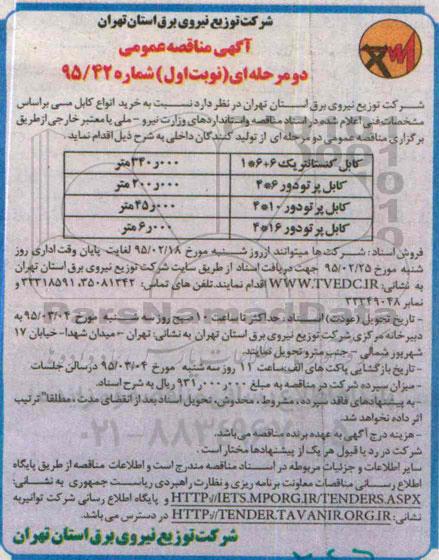 شرکت توزیع نیروی برق استان تهران
آگهی مناقصه عمومی
دو مرحله ای (نوبت اول) شماره ۹۵/۴۲
شرکت توزیع نیروی برق استان تهران در نظر دارد نسبت به خرید انواع کابل مسی براساس
مشخصات فنی اعلام شده در اسناد مناقصه واستانداردهای وزارت نیرو - ملی یا معتبر خارجی از طریق
برگزاری مناقصه عمومی دو مرحله ای از تولید کنندگان داخلی به شرح ذیل اقدام نماید.
کابل کنسانتریک ۶+۶*۱ ۳۴۰٫۰۰۰ متر
کابل پرتودور ۶*۴ ۲۰۰٫۰۰۰ متر
کابل پرتودور ۱۰*۴ ۴۵٫۰۰۰ متر
کابل پرتودور ۱۶*۴ ۶٫۰۰۰ متر
فروش اسناد : شرکت ها میتوانند از روز شنبه مورخ ۹۵/۰۲/۱۸ لغایت پایان وقت اداری روز
شنبه مورخ ۹۵/۰۲/۲۵ جهت دریافت اسناد از طریق سایت شرکت توزیع نیروی برق استان تهران
به نشانی: WWW.TVEDC.IR اقدام نمایند. تلفن های تماس: ۳۵۰۸۱۳۴۲ و ۳۳۳۱۸۵۹۱
نمابر ۳۳۳۴۹۰۴۸
- تاریخ تحویل (عودت) اسناد : حداکثر تا ساعت ۱۰ صبح روز سه شنبه مورخ ۹۵/۰۳/۰۴ به
دبیرخانه مرکزی شرکت توزیع نیروی برق استان تهران به نشانی: تهران - میدان شهدا- خیابان ۱۷
شهریور شمالی - جنب مترو تحویل نمایند.
- تاریخ بازگشایی پاکت های الف ساعت ۱۱ روز سه شنبه مورخ ۹۵/۰۳/۰۴ در سالن جلسات
- میزان سپرده شرکت در مناقصه به مبلغ ۹۳۱٫۰۰۰٫۰۰۰ ریال به شرح اسناد.
- به پیشنهادهای فاقد سپرده ، مشروط ، مخدوش، تحویل اسناد بعد از انقضای مدت ، مطلقا" ترتیب
اثر داده نخواهد شد.
- هزینه درج آگهی به عهده برنده مناقصه می باشد.
شرکت در رد یا قبول هر یک از پیشنهادها مختار است .
سایر اطلاعات و جزئیات مربوطه در اسناد مناقصه مندرج است و اطلاعات مناقصه از طریق پایگاه
اطلاع رسانی مناقصات معاونت برنامه ریزی و نظارت راهبردی ریاست جمهوری به نشانی:
HTTP://IETS.MPORG.IR/TENDERS.ASPX و پایگاه اطلاع رسانی شرکت توانیر به
نشانی: HTTP://TENDER.TAVANIR.ORG.IR در دسترس می باشد.
شرکت توزیع نیروی برق استان تهران